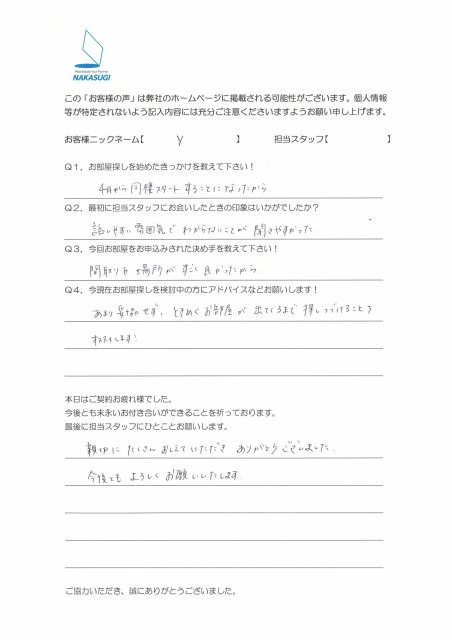 Real Estate Your Partner
NAKASUGI
この「お客様の声」は弊社のホームページに掲載される可能性がございます。個人情報
等が特定されないよう記入内容には充分ご注意くださいますようお願い申し上げます。
お客様ニックネーム【 y 】 担当スタッフ【 】
Q1、お部屋探しを始めたきっかけを教えて下さい！
4月から同棲スタートすることになったから
Q2、最初に担当スタッフにお会いしたときの印象はいかがでしたか？
話しやすい雰囲気でわからないことが聞きやすかった
Q3、今回お部屋をお申込みされた決め手を教えて下さい！
間取りや場所がすごく良かったから
Q4、今現在お部屋探しを検討中の方にアドバイスなどお願いします！
あまり妥協せず、ときめくお部屋が出てくるまで探しつづけることを
オススメします！
本日はご契約お疲れ様でした。
今後とも末永いお付き合いができることを祈っております。
最後に担当スタッフにひとことお願いします。
親切にたくさんおしえていただきありがとうございました。
今後ともよろしくお願いいたします。
ご協力いただき、誠にありがとうございました。